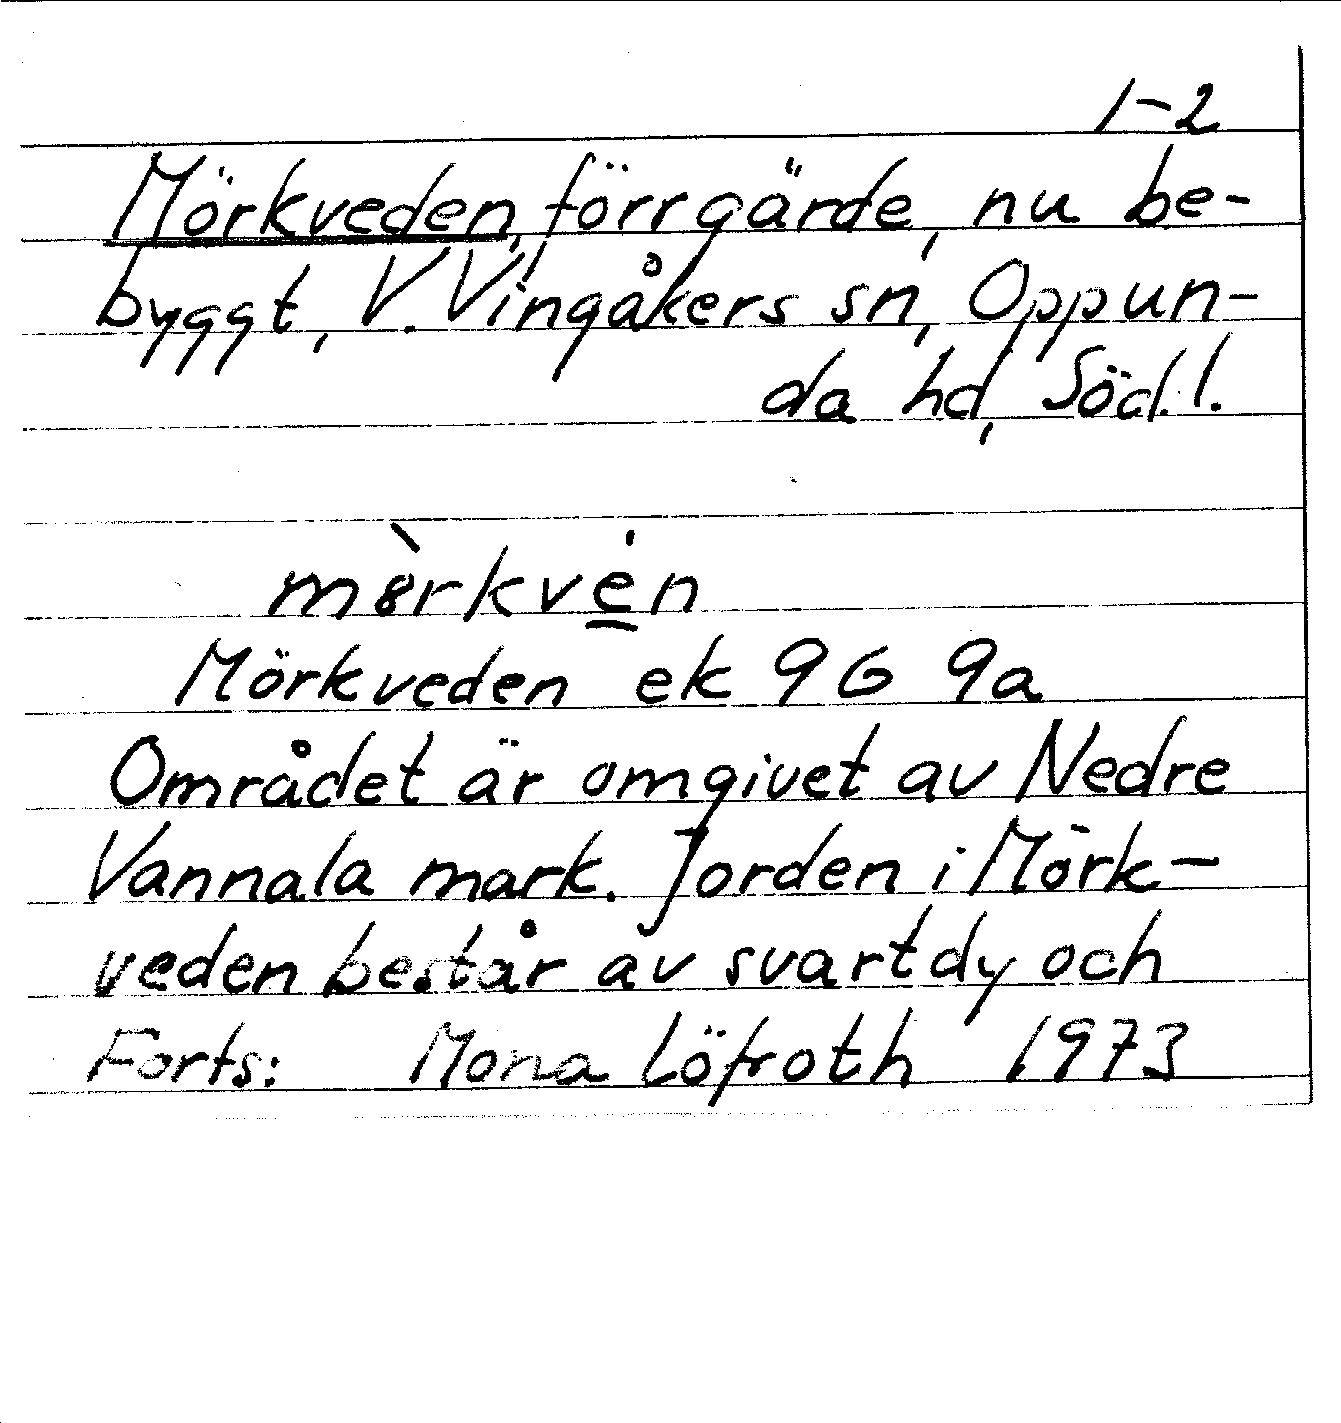 1-2
Mörkveden, förr gärde, nu be-
byggt, V. Vingåkers sn, Oppun-
da hd, Söd.l.
mö̀rkvėn
Mörkveden ek 9G 9a
Området är omgivet av Nedre
Vannala mark. Jorden i Mörk-
veden består av svartdy och
Forts: Mona Löfroth 1973